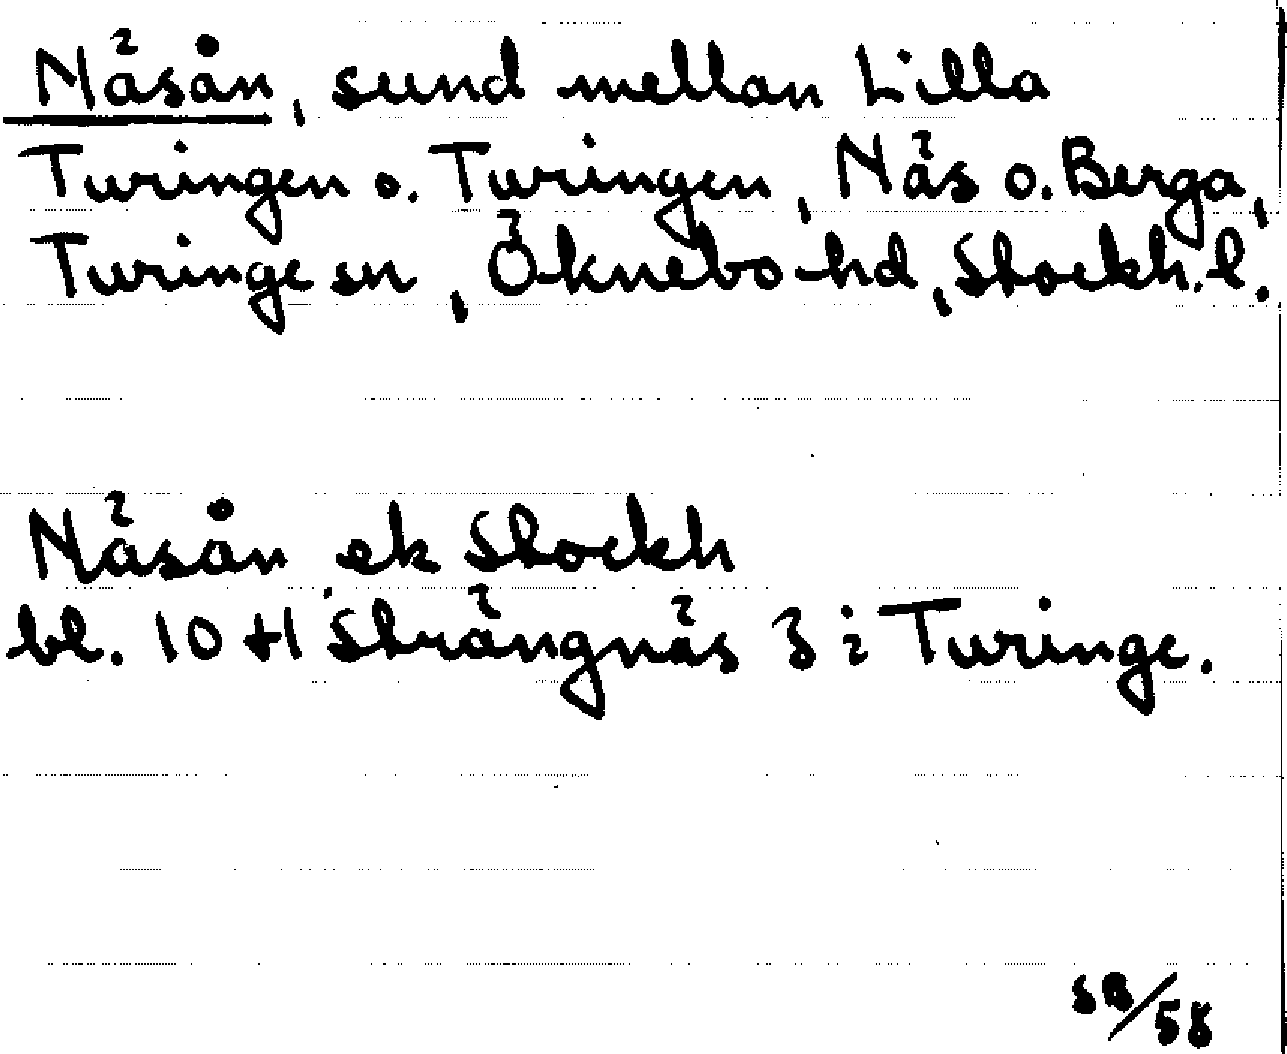 Näsån, sund mellan Lilla
Turingen o. Turingen, Näs o. Berga,
Turinge sn, Öknebo hd, Stockh. l.
Näsån ek Stockh
bl. 10 H Strängnäs 3 i Turinge.
SB/58